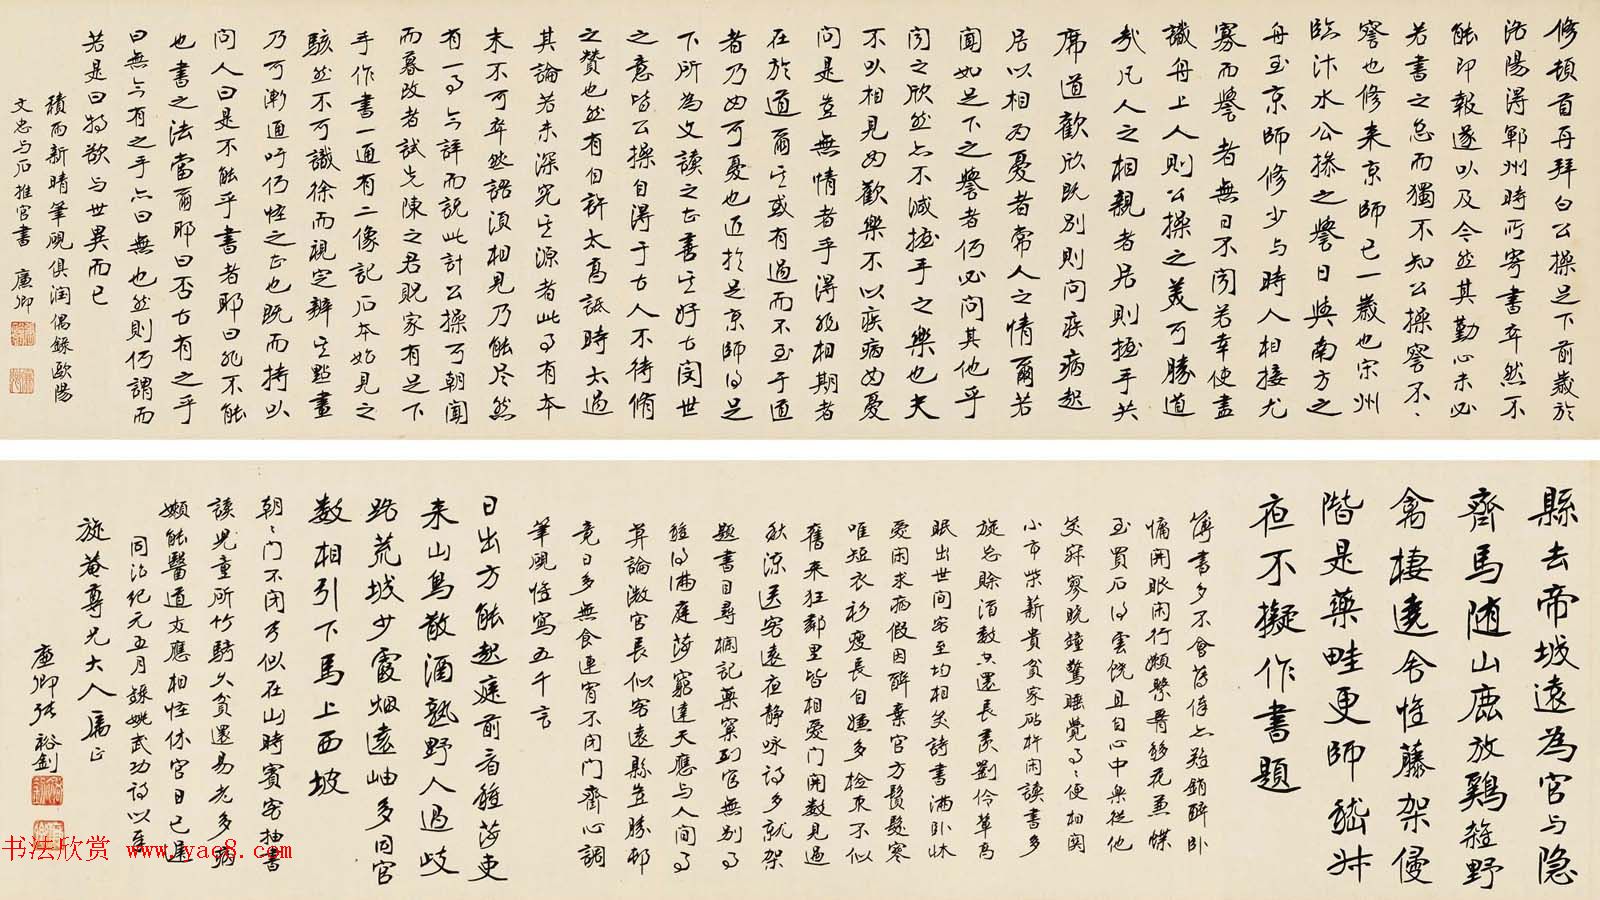 修頓首再拜白公操足下前歲於
洛陽得鄆州時所寄書卒然不
能即報遂以及今然其勤心未必
若書之怠而獨不知公操察不、
察也修來京師已一歲也宋州
臨汴水公操之譽日與南方之
舟至京師修少與時人相接尤
寡而譽者無日不聞若幸使盡
識舟上人則公操之美可勝道
哉凡人之相親者居則握手共
席道歡欣既別則問疾病起
居以相為憂者常人之情爾若
聞如足下之譽者何必問其他乎
聞之欣然亦不減握手之樂也夫
不以相見為歡樂不以疾病為憂
問是豈無情者乎得非相期者
在於道爾其或有過而不至于道
者乃為可憂也近於足京師得足
下所為文讀之甚善其好古閔世
之意皆公操自得于古人不待脩
之贊也然有自許太高詆時太過
其論若未深究其源者此事有本
末不可卒然語須相見乃能盡然
有一事今詳而說此計公操可朝聞
而暮改者試先陳之君貺家有足下
手作書一通有二像記石本始見之
駭然不可識徐而視定辨其點畫
乃可漸通吁何怪之甚也既而持以
問人曰是不能乎書者耶曰非不能
也書之法當爾耶曰否古有之乎
曰無今有之乎亦曰無也然則何謂而
若是曰特欲與世異而已
積雨新晴筆硯俱潤偶錄歐陽
文忠与石推官書 廉卿
縣去帝城遠為官与隐
齊馬随山鹿放鷄雜野
禽棲遶舍惟藤架侵
階是藥畦更師嵇叔
夜不擬作書題
簿書多不會薄俸亦難銷醉卧
慵開眼閑行懶繫腰移花兼蝶
至買石得雲饒且自心中樂從他
笑寂寥曉鐘驚睡覺事、便相關
小市柴薪貴貧家砧杵閑讀書多
旋忘賒酒數空還長羨劉伶輩高
眠出世間客至均相笑詩書滿卧牀
愛閑求病假因醉棄官方鬢髮寒
唯短衣衫瘦長自嫌多檢束不似
舊來狂鄰里皆相愛門開數見過
秋涼送客遠夜靜咏詩多就架
題書目尋欄記藥窠到官無別事
種得滿庭莎窮達天應與人間事
莫論微官長似客遠縣豈勝邨
竟日多無食連宵不閉門齊心調
筆硯惟寫五千言
日出方能起庭前看種莎吏
来山鳥散酒熟野人過岐
路荒城少霞烟遠岫多同官
數相引下馬上西坡
朝、門不閉長似在山時賓客抽書
讀兒童斫竹騎久貧還易老多病
懶能醫道友應相怪休官日已遲
同治紀元五月錄姚武功詩以為
旋菴尊兄大人属正
廉卿張裕釗
书法欣赏 www.yac8.com